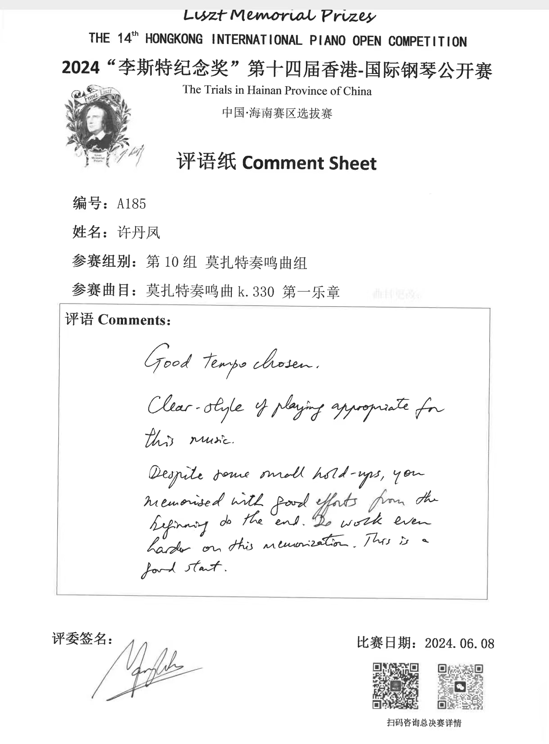 Liszt Memorial Prizes
THE 14th HONGKONG INTERNATIONAL PIANO OPEN COMPETITION
2024“李斯特纪念奖”第十四届香港-国际钢琴公开赛
The Trials in Hainan Province of China
中国·海南赛区选拔赛
评语纸 Comment Sheet
编号：A185
姓名：许丹凤
参赛组别：第 10 组 莫扎特奏鸣曲组
参赛曲目：莫扎特奏鸣曲 k.330 第一乐章
评语 Comments：
Good tempo chosen.
Clear-style of playing appropriate for
this music.
Despite some small hold-ups, you
memorised with good efforts from the
beginning to the end. Do work even
harder on this memorization. This is a
good start.
评委签名：
比赛日期：2024.06.08
扫码咨询总决赛详情